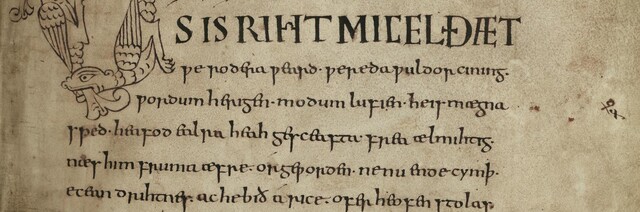 US IS RIHT MICEL ÐÆT
ƿe rodera ƿeard· ƿereda ƿuldor cining·
ƿordum herigen· modum lufien· he is mægna
sped· heafod ealra heah gesceafta frea ælmihtig·
næs him fruma æfre· or geƿorden· ne nu ende cymþ·
ecean drihtnes· ac he bið a rice· ofer heofen stolas·